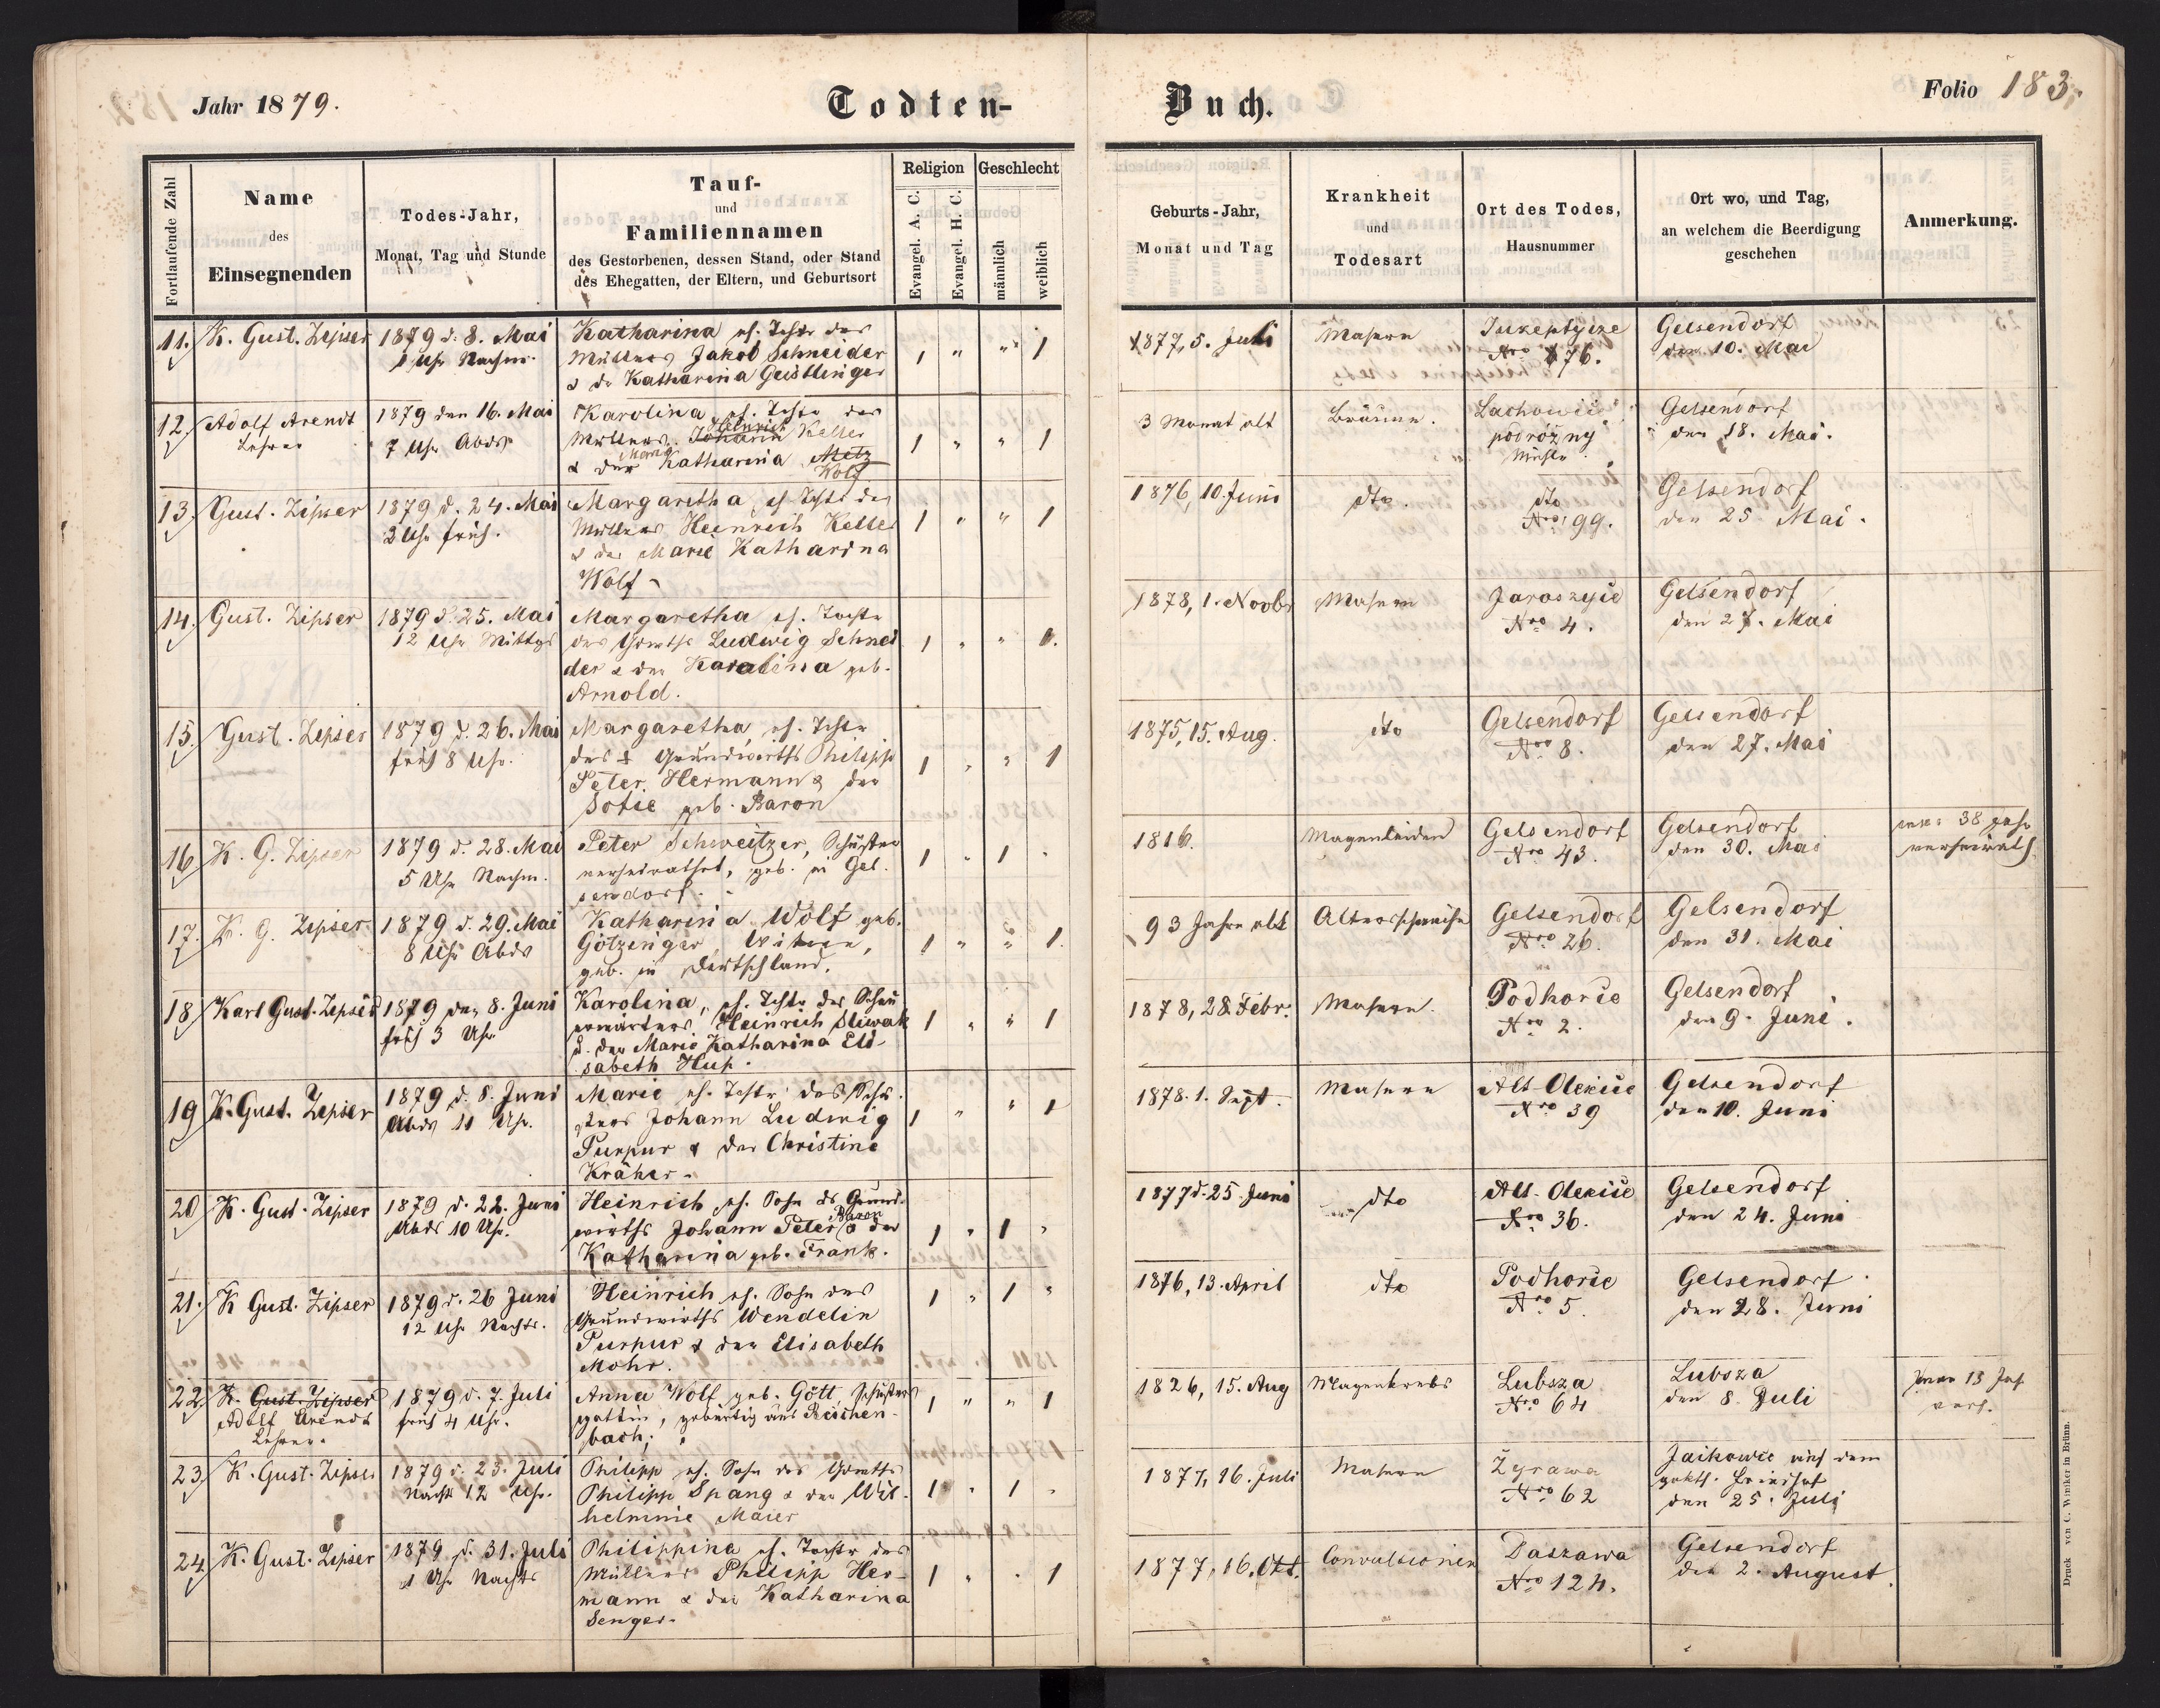 Jahr 1879.
Todten-
Buch.
Folio 183.
Fortlaufende Zahl
Name
des
Einsegnenden
Todes-Jahr,
Monat, Tag und Stunde
Tauf-
und
Familiennamen
des Gestorbenen, dessen Stand, oder Stand
des Ehegatten, der Eltern, und Geburtsort
Religion
Evangel. A. C.
Evangel. H. C.
Geschlecht
männlich
weiblich
Geburts-Jahr,
Monat und Tag
Krankheit
und
Todesart
Ort des Todes,
Hausnummer
Ort wo, und Tag,
an welchem die Beerdigung
geschehen
Anmerkung.
11. K. Gust. Zipser
1879 d. 8. Mai
1 Uhr Nachm.
Katharina eh. Tochter des
Müllers Jakob Schneider
& der Katharina Geistlinger
1 " " 1
1877, 5. Juli
Masern
Nro 176.
Gelsendorf
den 10. Mai
12. Adolf Arendt
Lehrer
1879 den 16. Mai
7 Uhr Abds
Karolina eh. Tochter des
Heinrich
Müllers Johann Keller
Maria
& der Katharina Metz
Wolf
1 " " 1
3 Monat alt
Bräune.
podróżny
Mühle
Gelsendorf
den 18. Mai.
13. Gust. Zipser
1879 d. 24. Mai
2 Uhr früh.
Margaretha eh. Tochter des
Müllers Heinrich Keller
& der Marie Katharina
Wolf
1 " " 1
1876, 10. Juni
dto.
dto
Nro 99.
Gelsendorf
den 25 Mai.
14. Gust. Zipser
1879 d. 25. Mai
12 Uhr Mittgs
Margaretha eh. Tochter
des Ludwig Schnei
der & der Karolina geb.
Arnold.
1 " "
1878, 1. Novbr
Masern
Jaroszyce
Nro 4.
Gelsendorf
den 27. Mai
15. Gust. Zipser
1879 d. 26. Mai
früh 8 Uhr.
Margaretha, eh. Tochter
des Grundwirths Philipp
Peter Hermann & der
Sofie geb. Baron
1 " " 1
1875, 15. Aug.
dto
Gelsendorf
Nro 8.
Gelsendorf
den 27. Mai
16 K. G. Zipser
1879 d. 28. Mai
5 Uhr Nachm.
Peter Schweitzer, Schuster
verheirathet, geb. in Gel.
sendorf.
1 " 1 "
1816.
Magenleiden
Gelsendorf
Nro 43.
Gelsendorf
den 30. Mai
38 Jahr
verheirath.
17. K. G. Zipser
1879 d. 29. Mai
8 Uhr Abds
Katharina Wolf geb.
Götzinger, Witwe,
geb. in Deutschland.
1 " " 1.
93 Jahre alt
Altersschwäche
Gelsendorf
Nro 26.
Gelsendorf
den 31. Mai
18 Karl Gust. Zipser
1879 den 8. Juni
früh 3 Uhr
Karolina, eh. Tochter des
Heinrich Sliwak
& der Marie Katharina Eli-
sabeth Hup.
1 " " 1
1878, 28 Febr.
Masern.
Podhorce
Nro 2.
Gelsendorf
den 9. Juni.
19 K. Gust. Zipser
1879 d. 8. Juni
Abds 11 Uhr.
Marie eh. Tochter des Schu
sters Johann Ludwig
Purpur & der Christine
Kräher
1 " " 1
1878. 1. Sept.
Masern
Alt Oleksice
Nro 39
Gelsendorf
den 10. Juni
20 K. Gust. Zipser
1879 d. 22. Juni
Abds 10 Uhr.
Heinrich eh. Sohn ds Grund-
Baron
wirths Johann Peter & der
Katharina geb. Frank.
1 " 1 "
1877 d. 25. Juni
dto
Alt-Oleksice
Nro 36.
Gelsendorf
den 24. Juni
21. K Gust. Zipser
1879 d. 26 Juni
12 Uhr Nachts.
Heinrich eh. Sohn des
Grundwirths Wendelin
Purpur & der Elisabeth
Mohr.
1 " 1 "
1876, 13. April
dto
Podhorce
Nro 5.
Gelsendorf
den 28. Juni
22 K. Gust. Zipser
Adolf Arendt
Lehrer
1879 d. 7. Juli
früh 4 Uhr.
Anna Wolf geb. Gött, Schusters
gattin, gebürtig aus Reichen-
bach;
1 " " 1
1826, 15. Aug
Magenkrebs
Lubsza
Nro 64
Lubsza
den 8. Juli
13 Jah
verh.
23 K. Gust. Zipser
1879 d. 23. Juli
Nachts 12 Uhr.
Philipp eh. Sohn des
Philipp Spang & der Wil-
helmine Maier
1 " 1 "
1877, 16. Juli
Masern
Żyrawa
Nro 62
Jaikowce auf dem
den 25. Juli
24 K. Gust. Zipser
1879 d. 31. Juli
1 Uhr Nachts
Philippina eh. Tochter des
Müllers Philipp Her-
mann & der Katharina
Senger
1 " " 1
1877, 16. Okt.
Convulsionen
Daszawa
Nro 124.
Gelsendorf
den 2. August.
Druck von C. Winiker in Brünn.